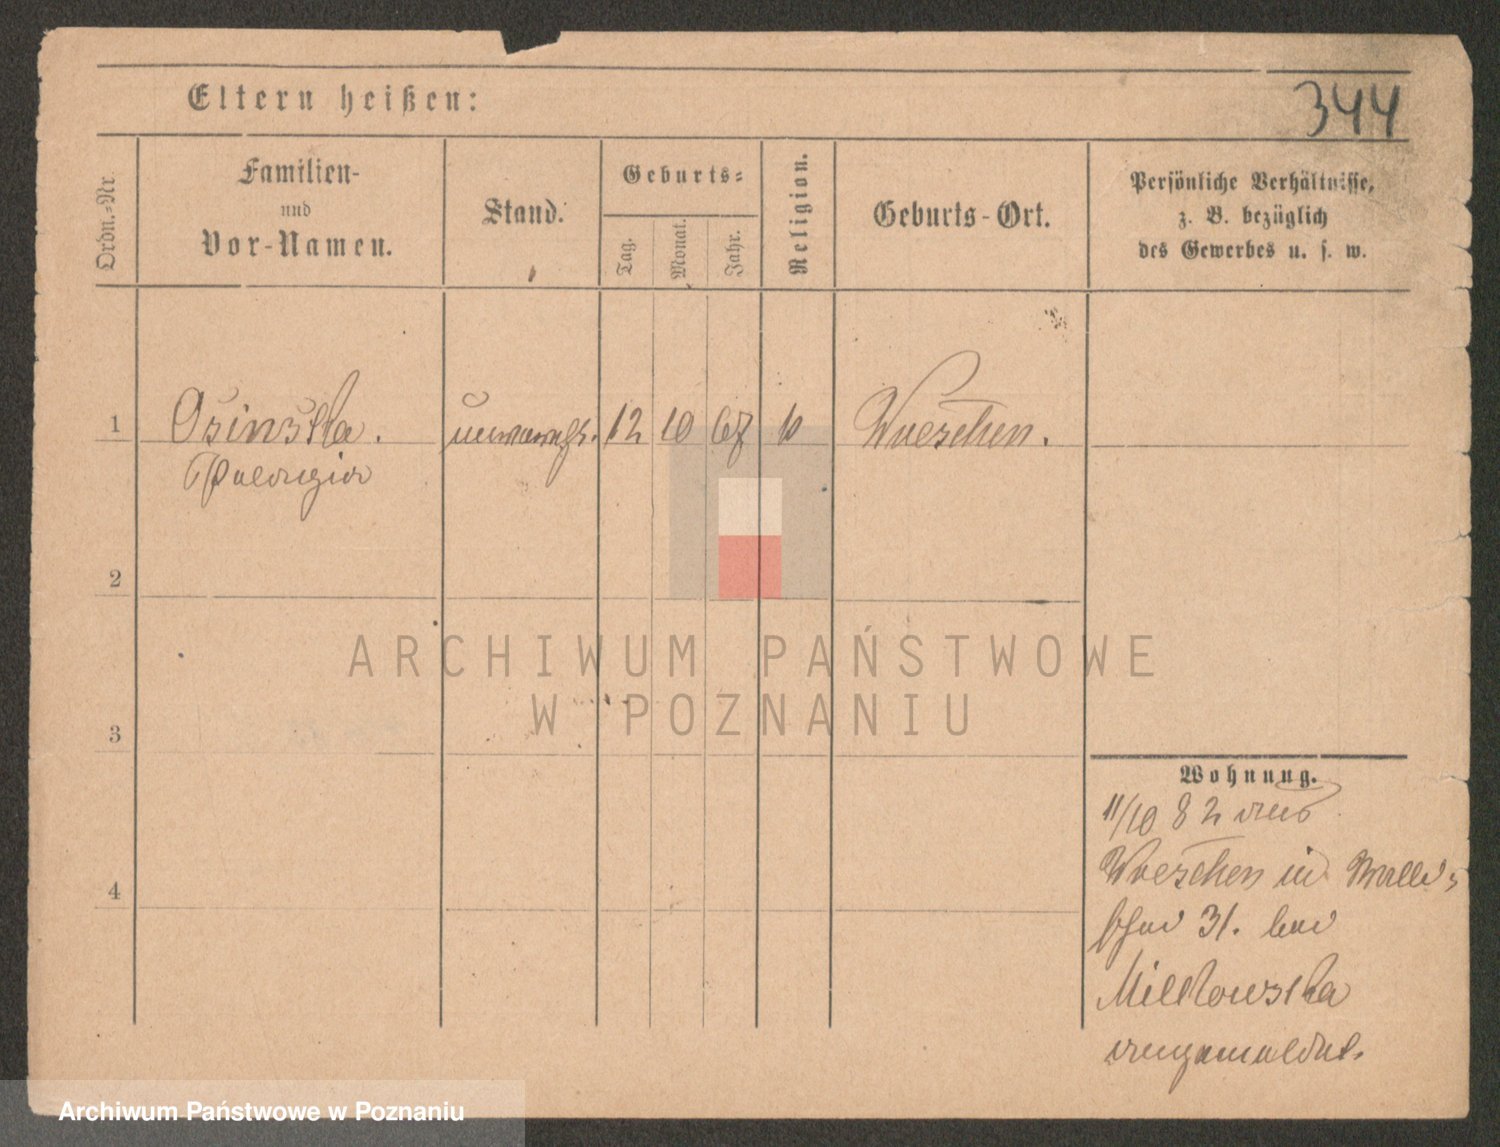 Eltern heißen:
344
Ordn.-Nr.
Familien-
und
Vor-Namen.
Stand.
Geburts-
Tag.
Monat.
Jahr.
Religion.
Geburts-Ort.
Persönliche Verhältnisse,
z. B. bezüglich
des Gewerbes u. s. w.
1
Osinska. unverehl. 12 10 67 k Wreschen.
Pelagia
2
ARCHIWUM PAŃSTWOWE
W POZNANIU
3
Wohnung.
11/10 82 aus
Wreschen in Walli-
schei 31. bei
Milkowska
angemeldet.
4
Archiwum Państwowe w Poznaniu